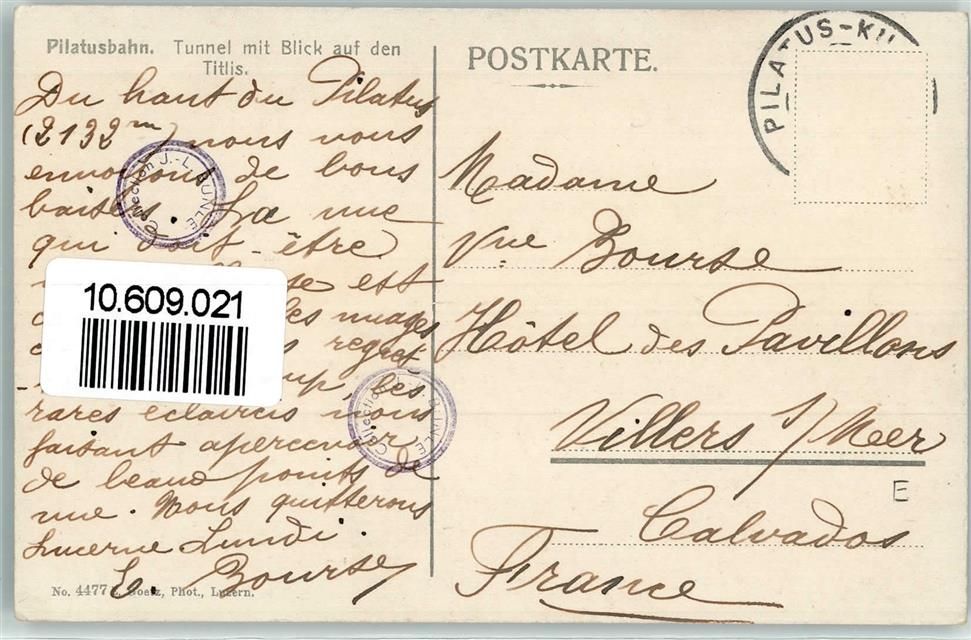 Pilatusbahn. Tunnel mit Blick auf den
Titlis.
Du haut du Pilatus
(2132m) nous vous
envoyons de bons
baisers. La vue
qui doit-être
se est
les nuages
regret-
up, les
rares éclaircis nous
faisant apercevoir
de beaux points de
vue. Nous quitterons
Lucerne Lundi.
L. Bourse
No. 4477 Goetz, Phot., Luzern.
10.609.021
Collection J.-L. BUNLE
Collection BUNLE
POSTKARTE.
PILATUS-KU
Madame
Vve Bourse
Hôtel des Pavillons
Villers s/Meer
Calvados
France
E